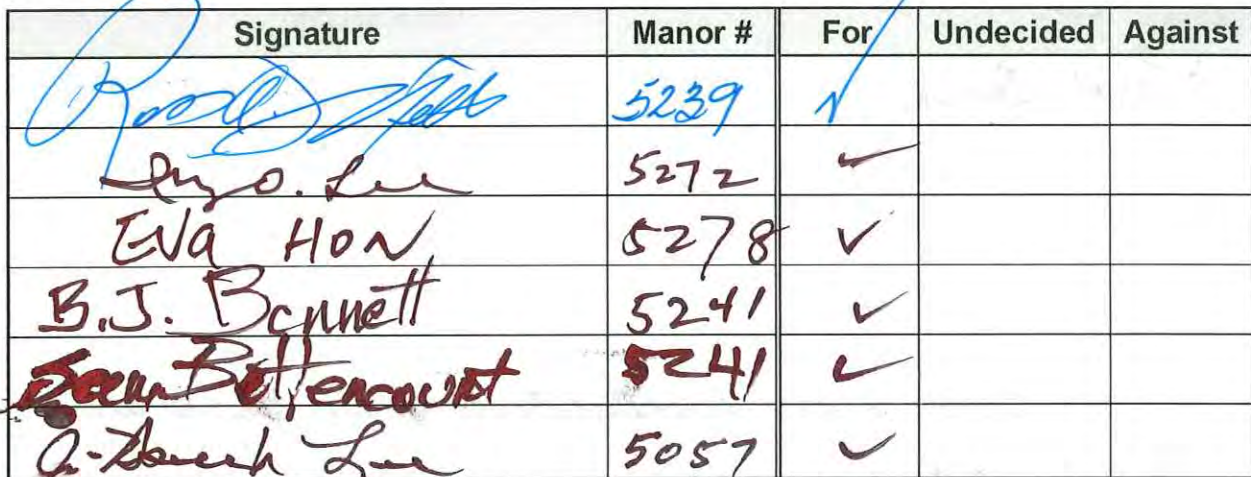 Signature Manor # For Undecided Against
5239 ✓
Lee 5272 ✓
Eva HON 5278 ✓
B.J. Bennett 5241 ✓
Bettencourt 5241 ✓
Lee 5057 ✓